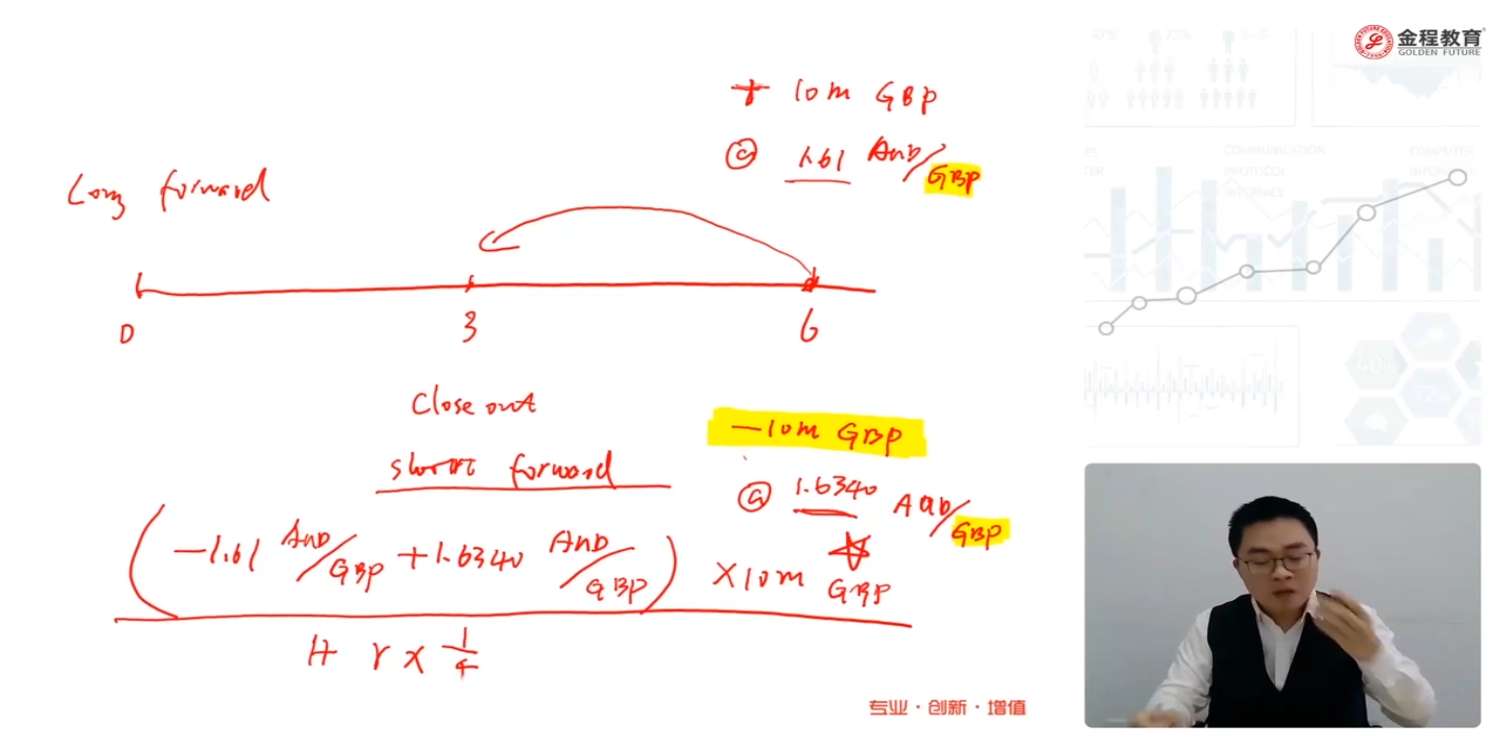 金程教育
GOLDEN FUTURE
+ 10m GBP
@ 1.61 AUD/GBP
Long forward
0 3 6
Close out
short forward
-10m GBP
@ 1.6340 AUD/GBP
(-1.61 AUD/GBP + 1.6340 AUD/GBP) × 10m GBP
1+ r × 1/4
专业·创新·增值